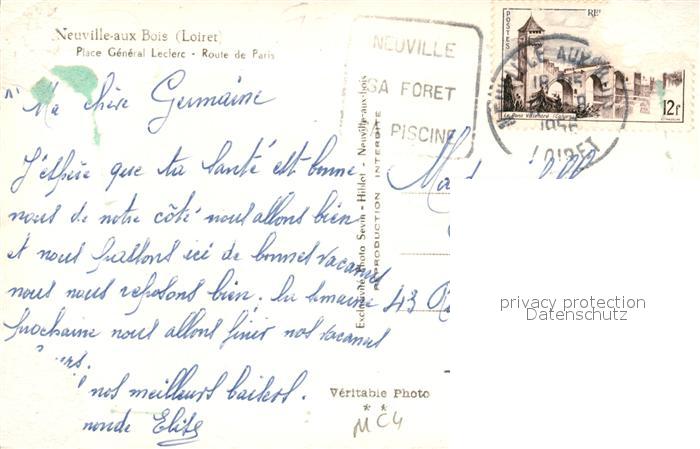 Neuville-aux Bois (Loiret)
Place Général Leclerc - Route de Paris
NEUVILLE
SA FORET
PISCINE
POSTES
12F
LOIRET
Ma chère Germaine
J'espère que ta santé est bonne
nous de notre côté nous allons bien
et nous passons ici de bonnes vacances
nous nous reposons bien. La semaine
prochaine nous allons finir nos vacances
nos meilleurs baisers.
Exclusivité Photo Sevin - Hiblot - Neuville-aux-bois
REPRODUCTION INTERDITE
43
privacy protection
Datenschutz
Véritable Photo
MC4